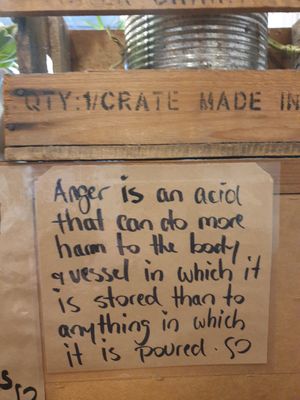 QTY:1/CRATE MADE IN
Anger is an acid
that can do more
harm to the body
& vessel in which it
is stored than to
anything in which
it is poured. SO